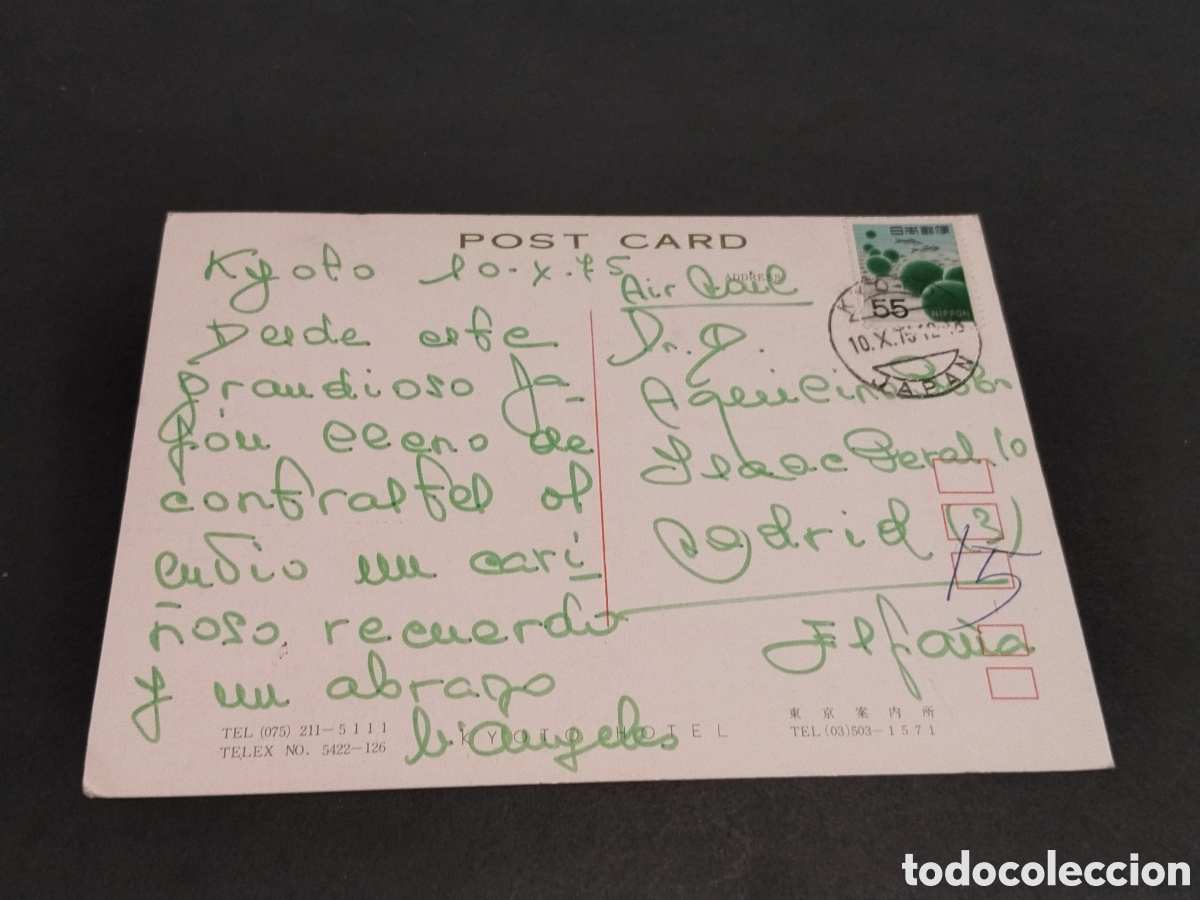 POST CARD
Kyoto 10-X-75
Desde este
grandioso Ja-
pón lleno de
contrastes os
envio un cari-
ñoso recuerdo
y un abrazo
Mª Angeles
TEL (075) 211-5111
TELEX NO. 5422-126
KYOTO HOTEL
ADDRESS
Air Mail
Dr. D.
Isaac Peral 10
Madrid (3)
15
España
東京案内所
TEL (03) 503-1571
日本郵便
55
NIPPON
10.X.75
JAPAN
todocoleccion